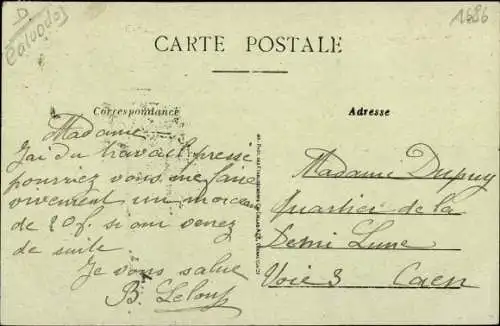 D
Calvados
1486
CARTE POSTALE
Correspondance
Adresse
Madame
Jai du travail pressé
pourriez vous me faire
vivement un morceau
de 20f. si oui venez
de suite
Je vous salue
B. Leloup
Madame Dupuy
Quartier de la
Demi Lune
Voie 3 Caen